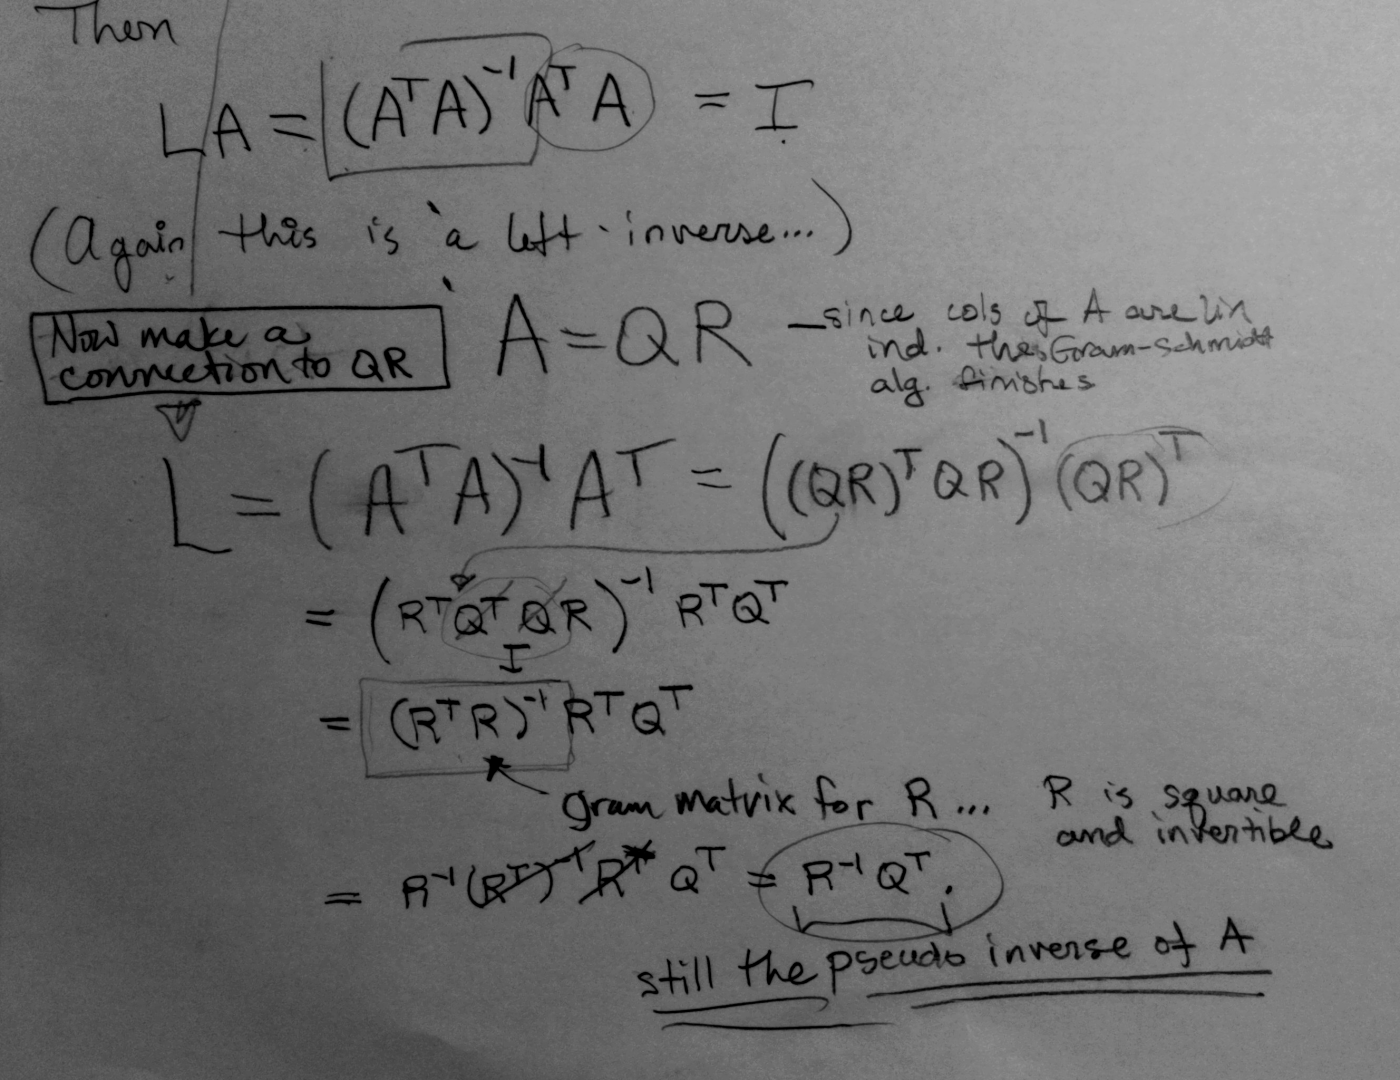 Then
LA = (AᵀA)⁻¹AᵀA = I
(Again this is a left-inverse...)
Now make a
connection to QR
A = QR — since cols of A are lin
ind. the Gram-Schmidt
alg. finishes
L = (AᵀA)⁻¹Aᵀ = ((QR)ᵀQR)⁻¹(QR)ᵀ
= (RᵀQᵀQR)⁻¹ RᵀQᵀ
I
= (RᵀR)⁻¹RᵀQᵀ
gram matrix for R... R is square
and invertible
= R⁻¹(Rᵀ)⁻¹RᵀQᵀ = R⁻¹Qᵀ.
still the pseudo inverse of A